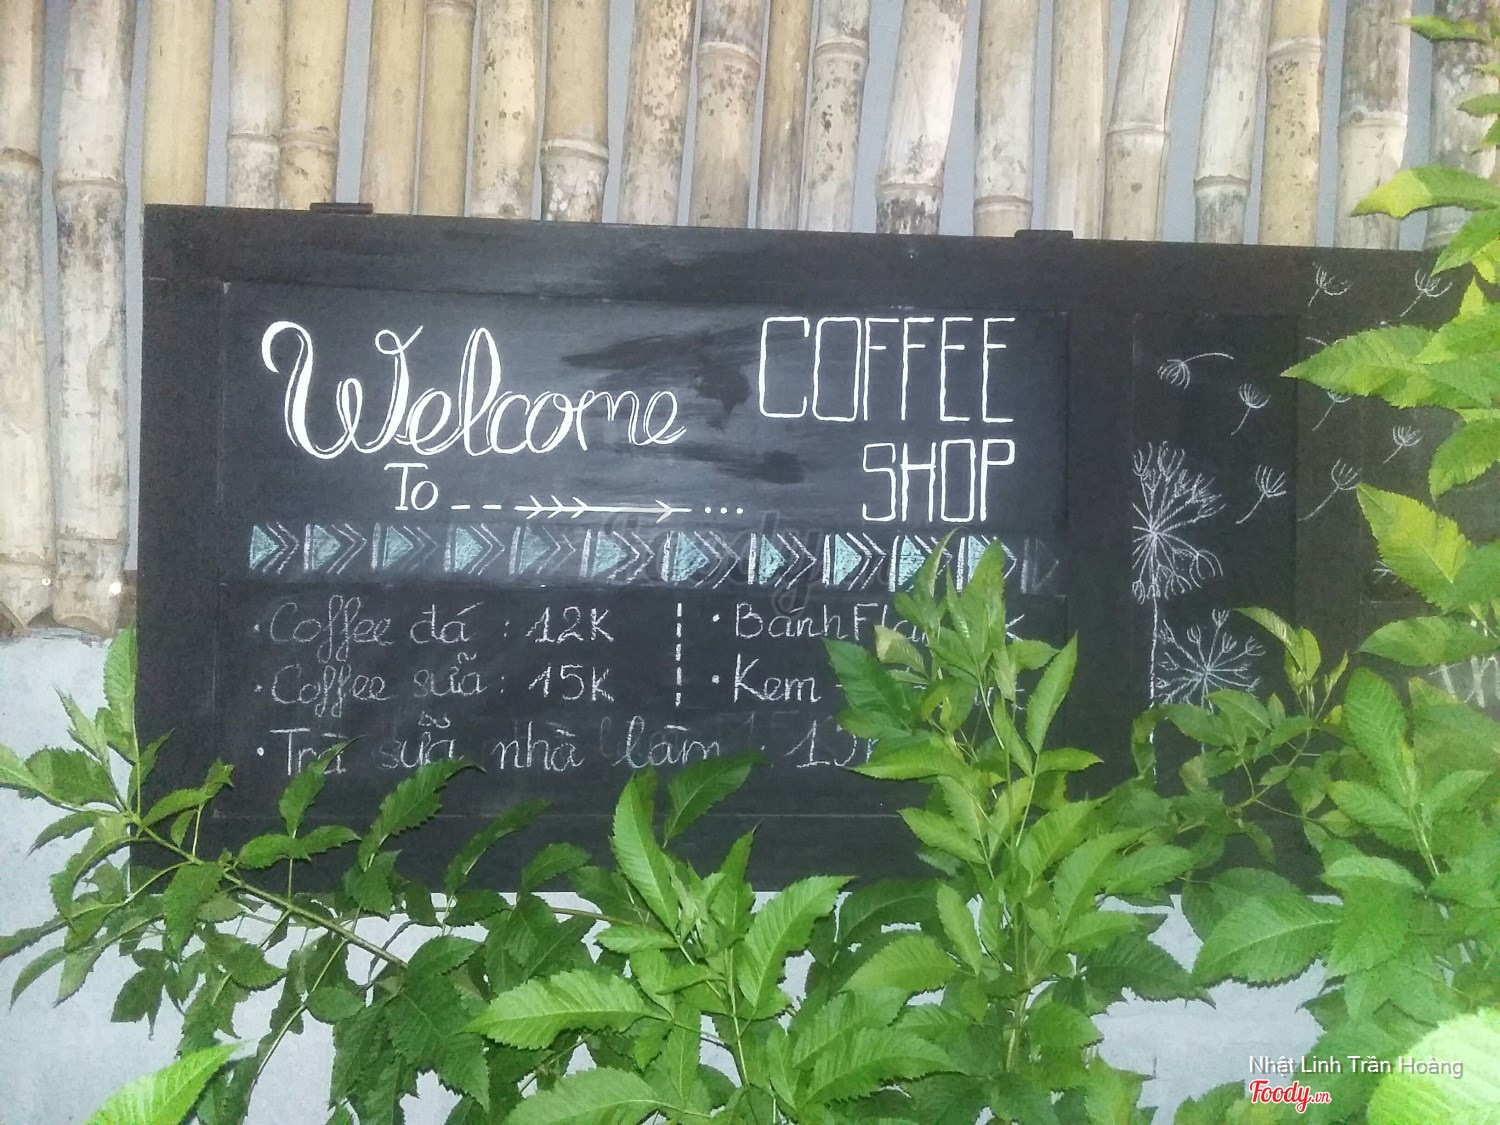 Welcome
To
COFFEE
SHOP
Coffee đá : 12K
Coffee sữa : 15K
Trà sữa nhà làm :
Bánh Flan
Kem
Nhật Linh Trần Hoàng
Foody.vn